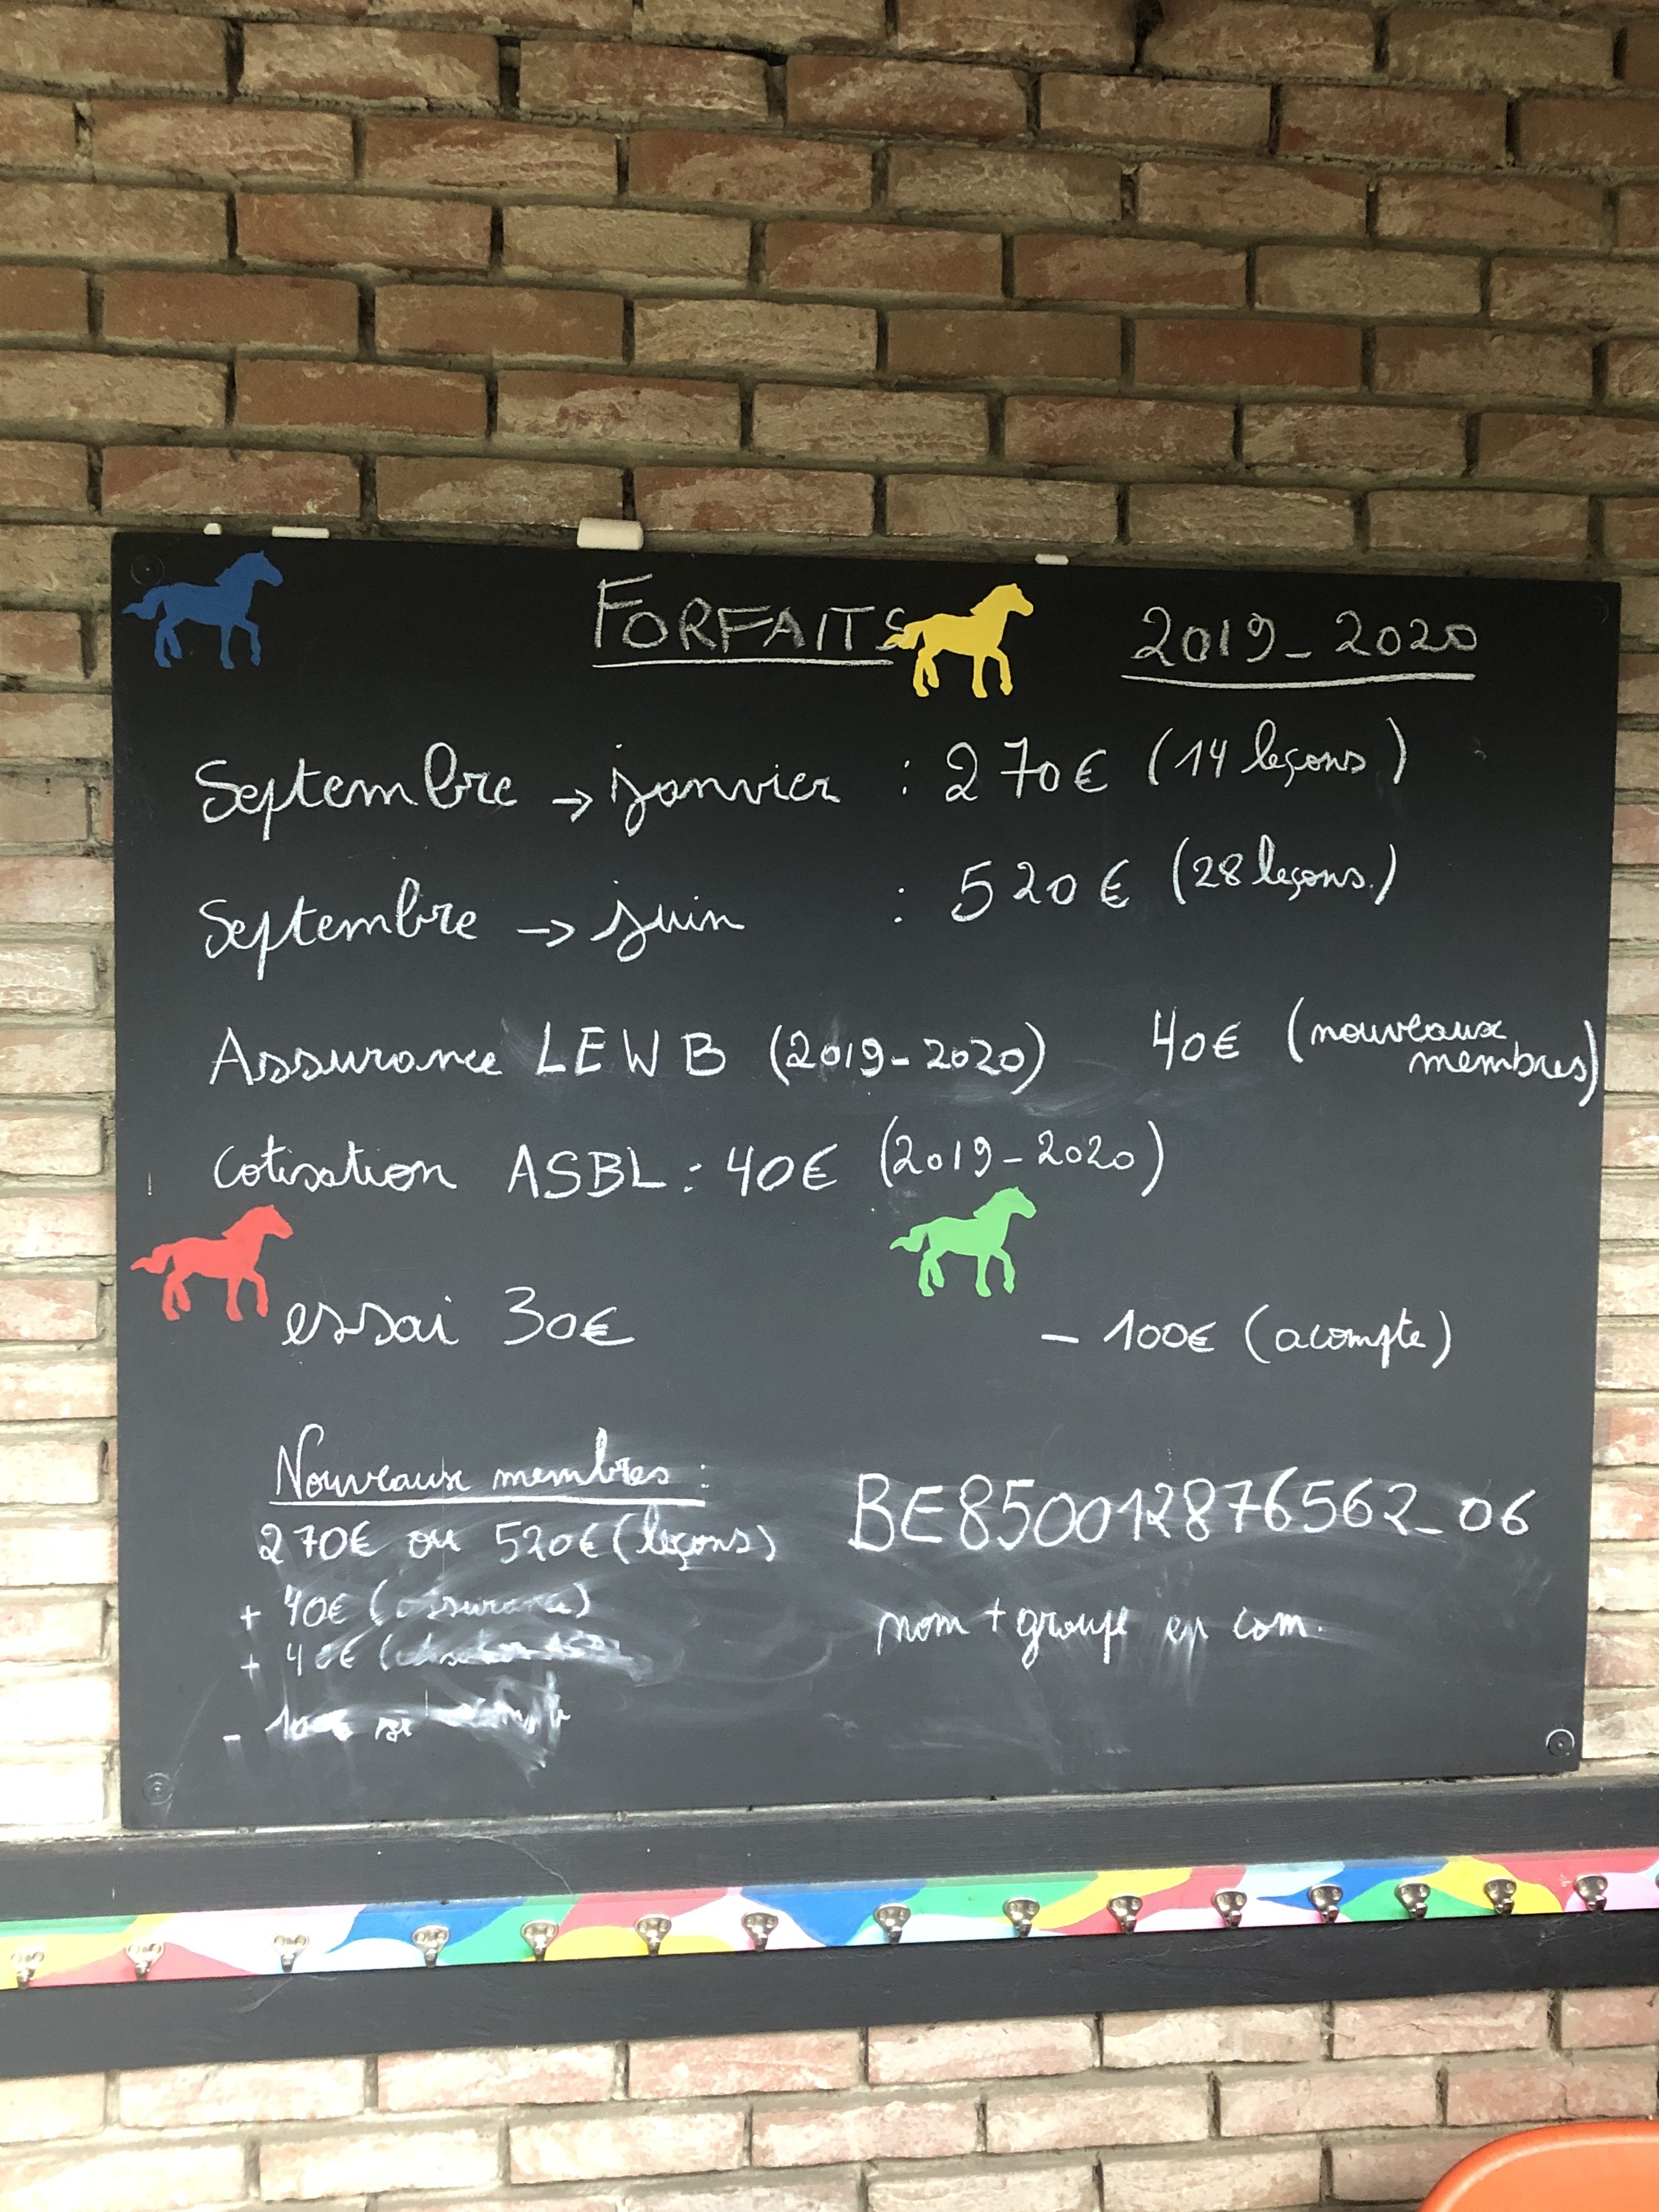 FORFAITS 2019_2020
Septembre → janvier : 270€ (14 leçons)
Septembre → juin : 520€ (28 leçons.)
Assurance LEWB (2019-2020) 40€ (nouveaux
membres)
Cotisation ASBL : 40€ (2019-2020)
essai 30€
- 100€ (acompte)
Nouveaux membres :
270€ ou 520€ (leçons)
+ 40€ (assurance)
+ 40€
-
BE850012876562_06
nom + groupe en com.